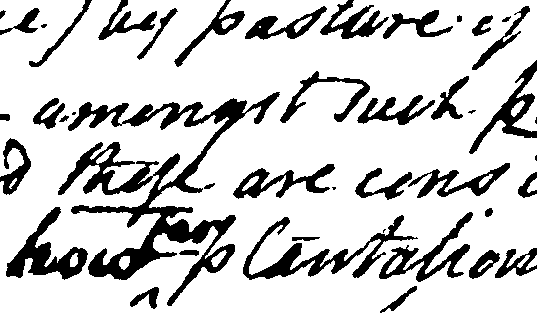 by pasture of
amongst such
these are cons
how far plantation